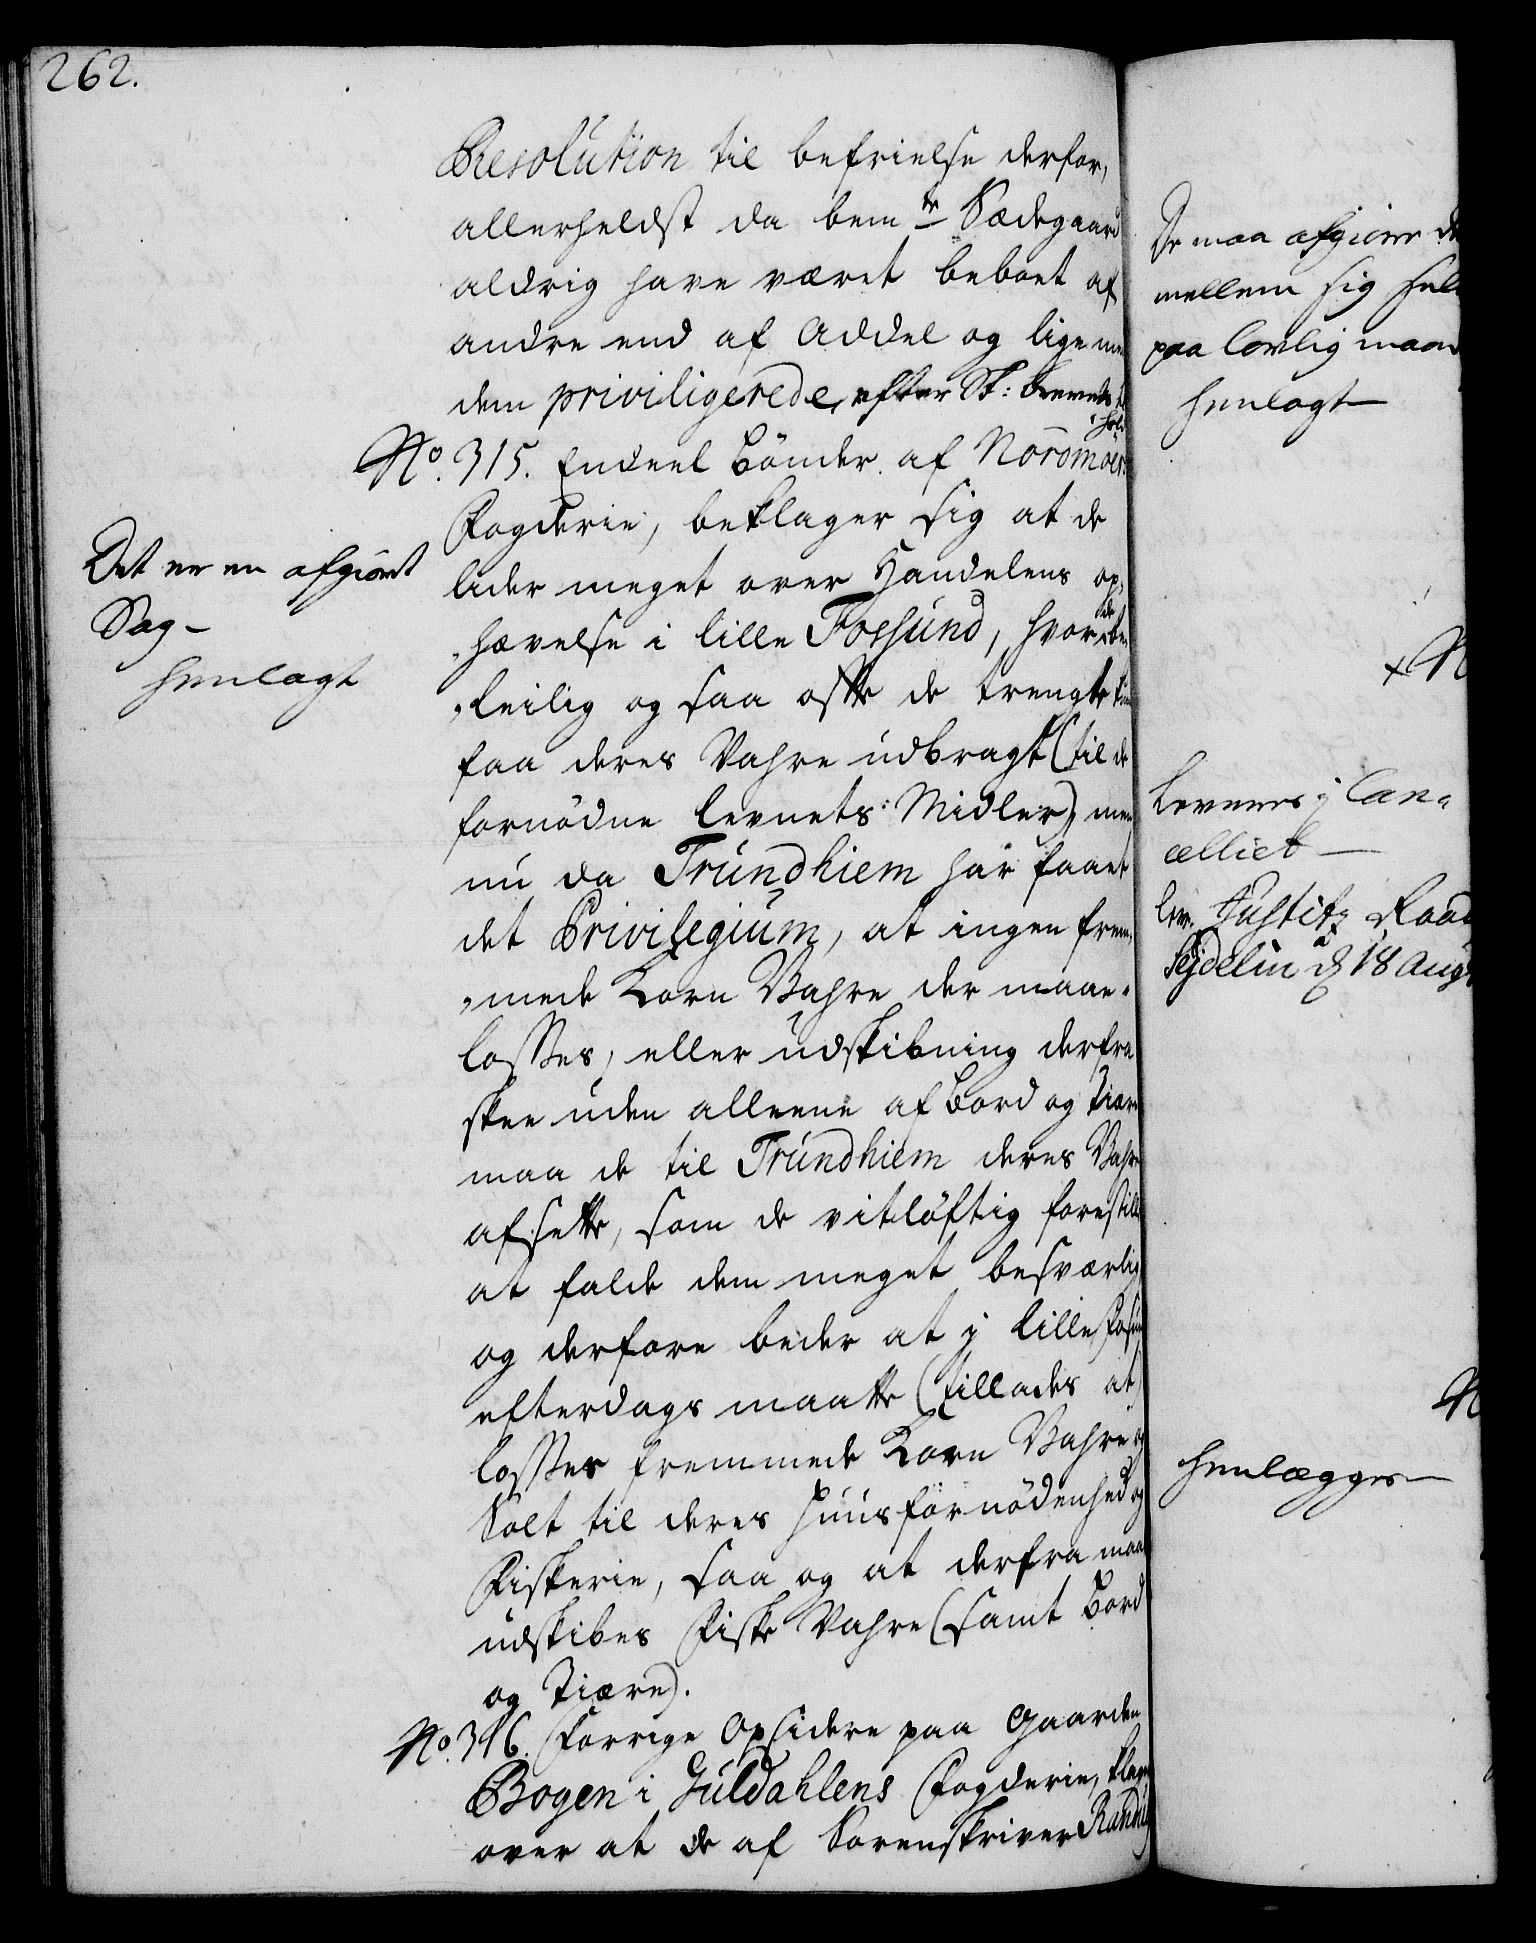 262.
Resolution til befrielse derfor,
allerheldst da bemte Sædegaard
aldrig have været beboet af
andre end af Addel og lige med
dem priviligerede, efter St: brevets
No. 315. Endeel bönder af Nordmoers
Fogderie, beklager sig at de
lider meget over Handelens op-
hævelse i lille Fossund, hvor de be-
leilig og saa ofte de trengte kunde
faa deres Vahre udbragt (til de
fornödne levnets-Midler) men
nu da Trundhiem har faaet
det Privilegium, at ingen frem-
mede Korn Vahre der maae
losses, eller udskibning derfra
skee uden alleene af bord og Tiære
maa de til Trundhiem deres Vahre
afsette, som de vitlöftig forestiller
at falde dem meget besværlig
og derfore beder at j lille Fosund
efterdags maatte (tillades at)
losses fremmede Korn Vahre og
Salt til deres Huusfornödenhed og
Fiskerie, saa og at derfra maa
udskibes Fiske Vahre (samt bord
og Tiære).
No. 316. Forrige Opsidere paa Gaarden
Bogen i Guldahlens Fogderie, klager
over at de af Sorenskriver
Det er en afgiort
Sag-
henlagt
De maa afgiøre de
mellem sig selv
paa lovlig maade
henlagt
×N
leveres j Can-
celliet
lev. Justitz Raad
Sejdelin d 18 Aug
N
henlægges